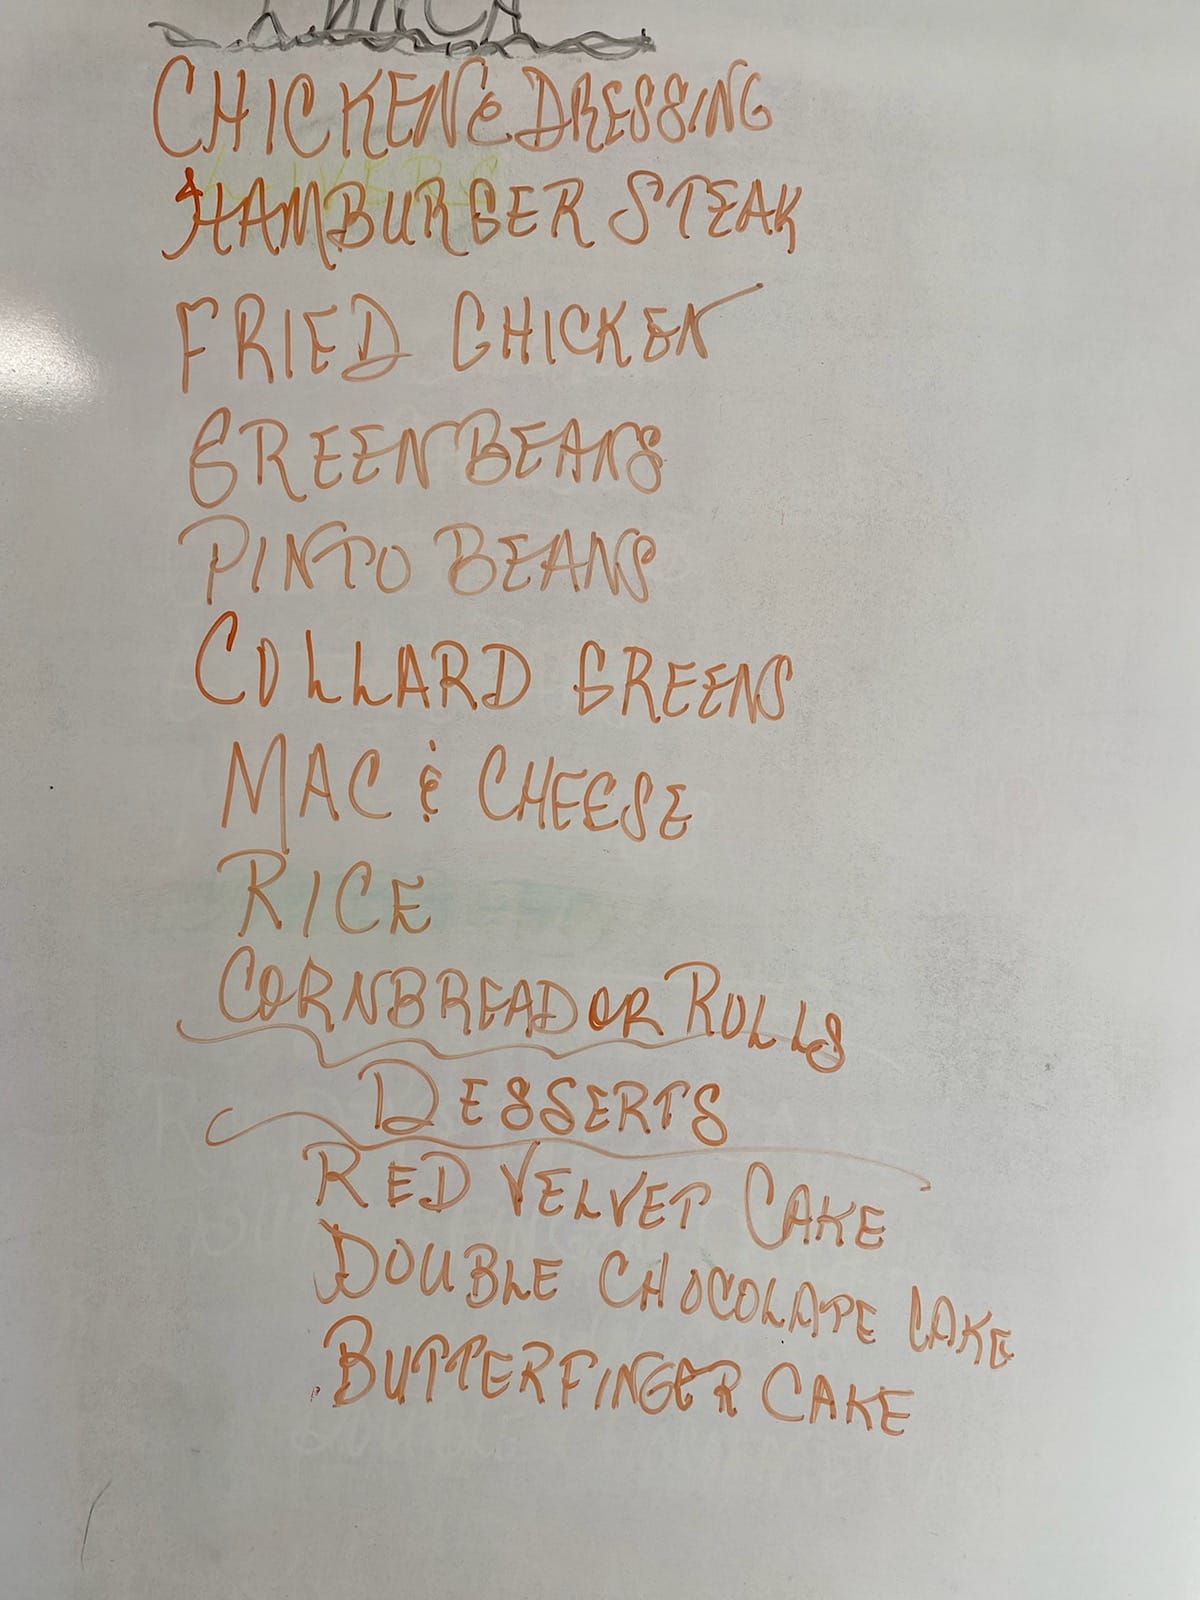 LUNCH
CHICKEN & DRESSING
HAMBURGER STEAK
FRIED CHICKEN
GREEN BEANS
PINTO BEANS
COLLARD GREENS
MAC & CHEESE
RICE
CORNBREAD OR ROLLS
DESSERTS
RED VELVET CAKE
DOUBLE CHOCOLATE CAKE
BUTTERFINGER CAKE